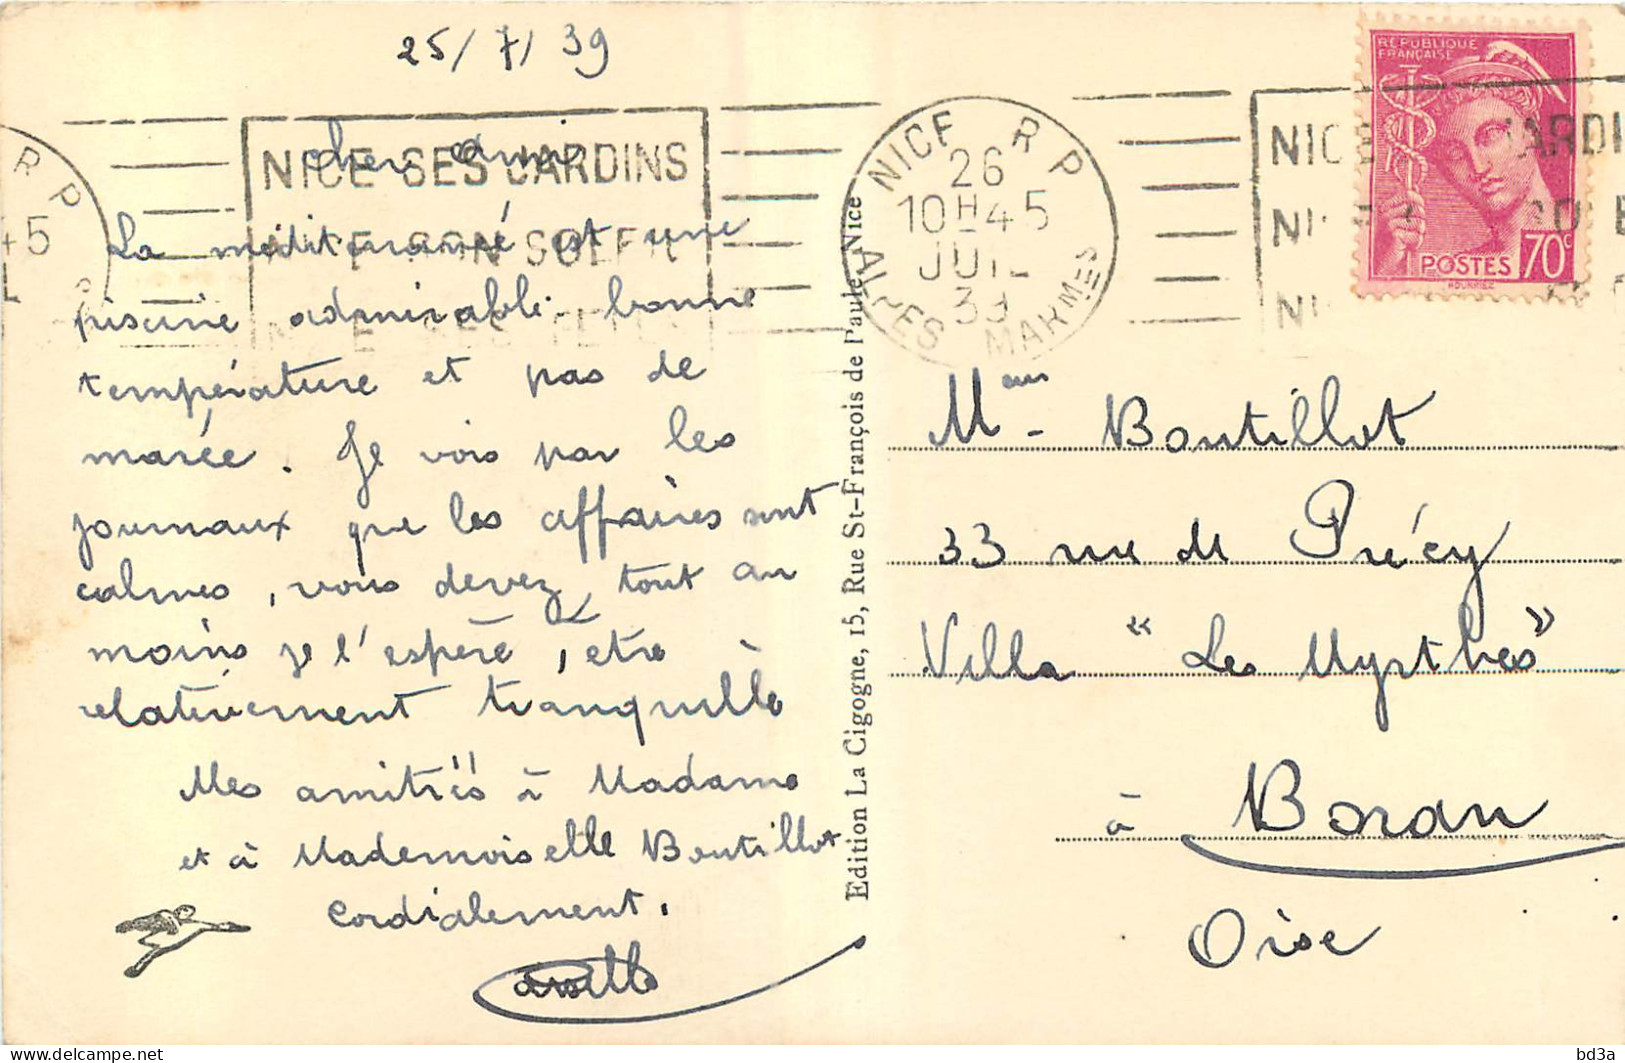 25/7/39
cher ami
La méditerranée est une
piscine admirable. bonne
température et pas de
marée. Je vois par les
journaux que les affaires sont
calmes, vous devez, tout au
moins je l'espère, etre
relativement tranquille
Mes amitiés à Madame
et à Mademoiselle Boutillot
Cordialement.
NICE SES JARDINS
NICE SON SOLEIL
NICE SES
NICE R P
26
10H45
JUIL
39
ALPES MARMES
R P
45
RÉPUBLIQUE
FRANÇAISE
POSTES 70c
NICE JARDI
Edition La Cigogne, 15, Rue St-François de Paule-Nice
Mr - Boutillot
33 rue de Précy
Villa "Les Myrthes"
à Boran
Oise
bd3a